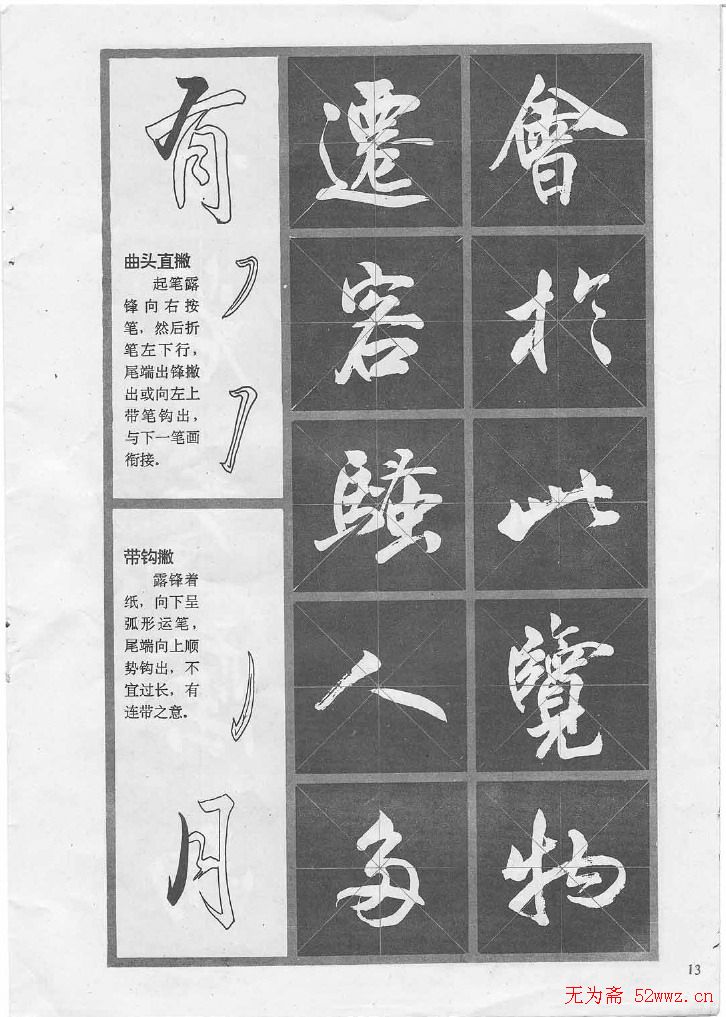 有
曲头直撇
起笔露
锋向右按
笔，然后折
笔左下行，
尾端出锋撇
出或向左上
带笔钩出，
与下一笔画
衔接。
带钩撇
露锋着
纸，向下呈
弧形运笔，
尾端向上顺
势钩出，不
宜过长，有
连带之意。
月
遷客騷人多
會於此覽物
13
无为斋 52wwz.cn